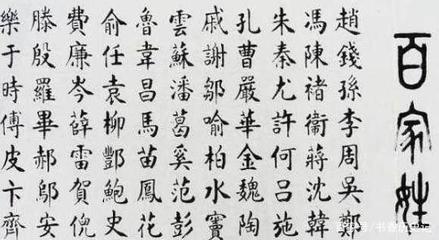 百家姓
趙錢孫李周吳鄭
馮陳褚衞蔣沈韓
朱秦尤許何呂施
孔曹嚴華金魏陶
戚謝鄒喻柏水竇
雲蘇潘葛奚范彭
魯韋昌馬苗鳳花
俞任袁柳酆鮑史
費廉岑薛雷賀倪
滕殷羅畢郝鄔安
樂于時傅皮卞齊